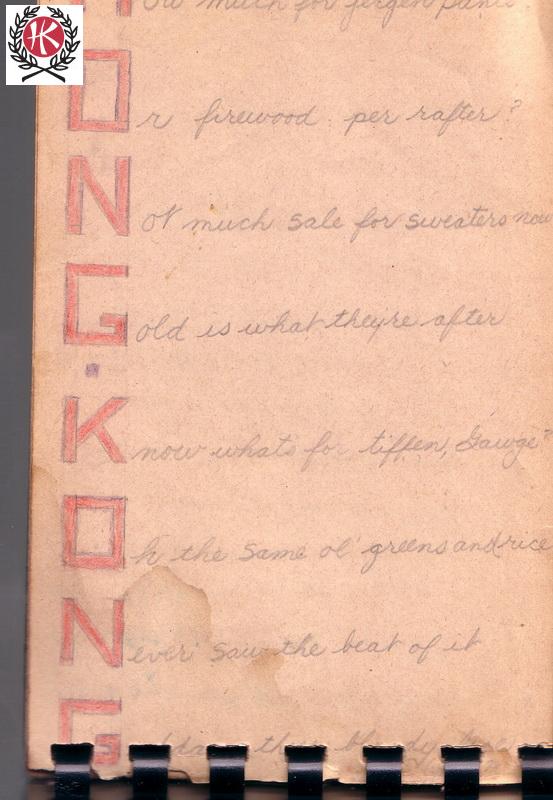 HK
How much for jergen pants
Or firewood per rafter?
Not much sale for sweaters now
Gold is what theyre after
Know whats for tiffen, Gawge"
Oh the same ol' greens and rice
Never saw the beat of it
G